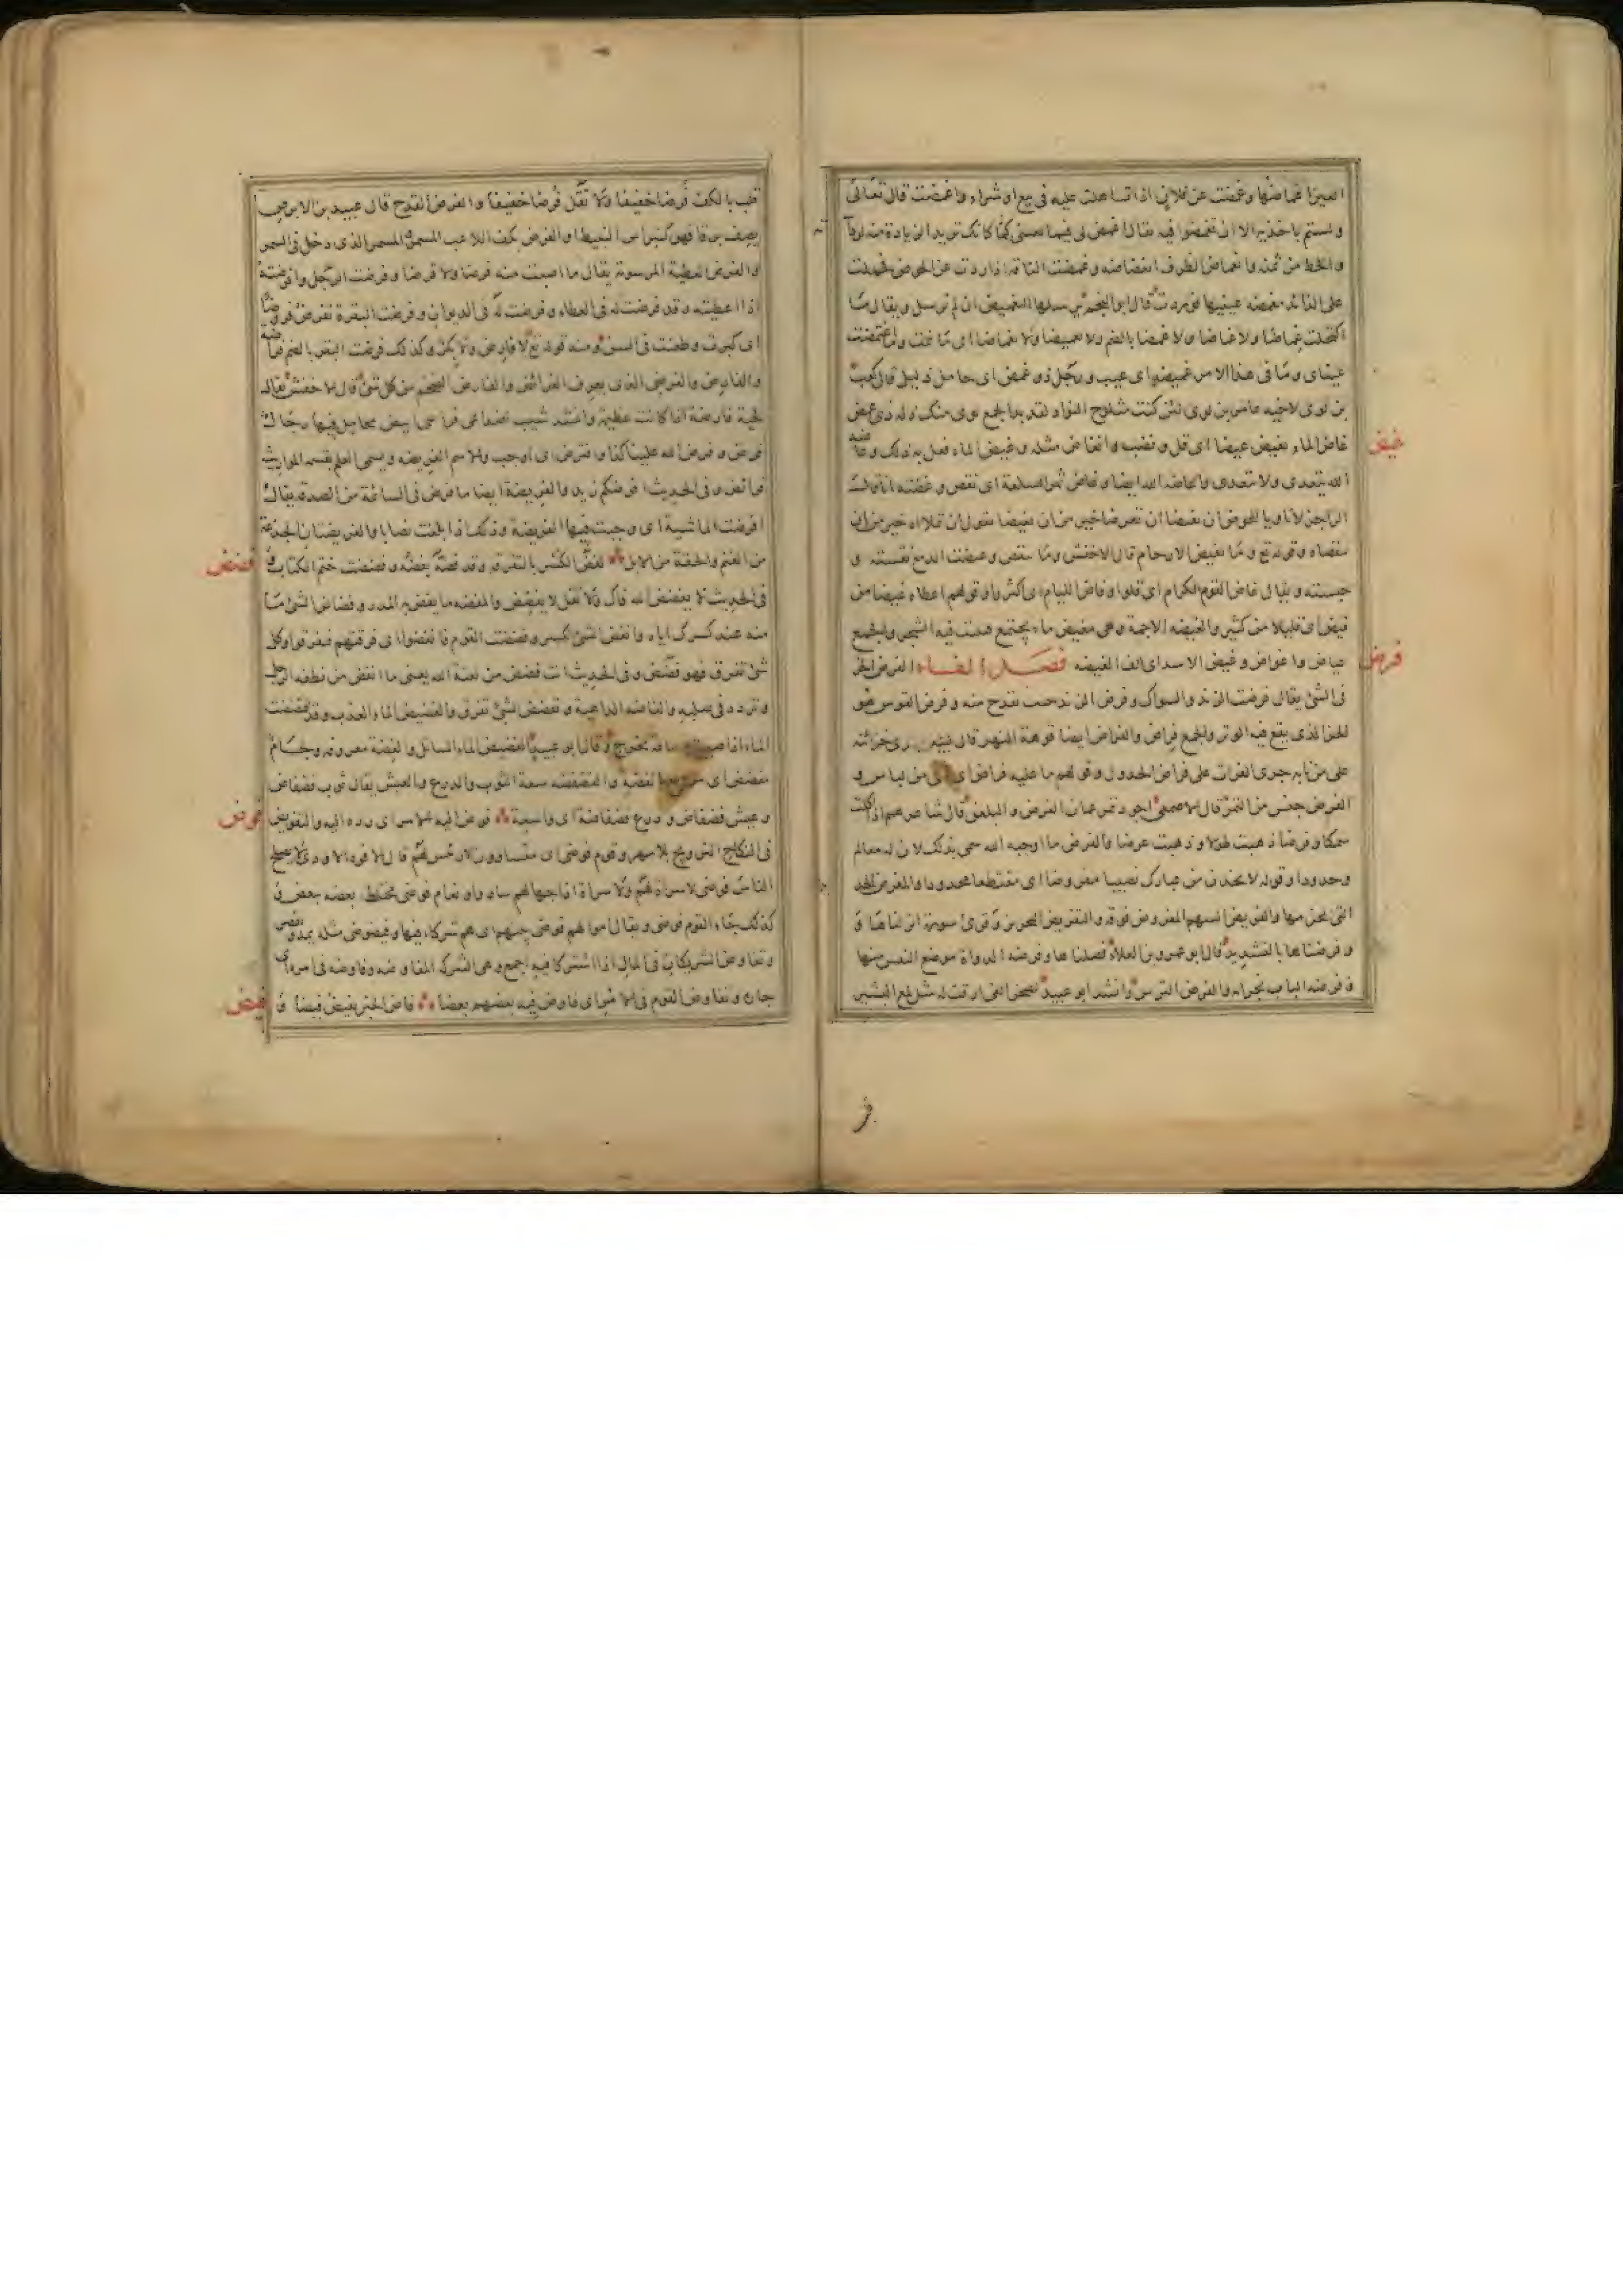 العين اغماضها وغمضت عن فلان اذا تساهلت عليه في بيع او شراء واغمضت قال تعالى
ولستم باخذيه الا ان تغمضوا فيه يقال اغمض لي فيما بعتني كانك تريد الزيادة منه لرداءته
والحط من ثمنه وانغماض الطرف انغضاضه وغمضت الناقة اذا ردت عن الحوض فحملت
على الذائد مغمضة عينيها فوردت قال ابو النجم يرسلها التغميض ان لم ترسل ويقال ما
اكتحلت غماضا ولا غماضا ولا غمضا بالضم ولا تغميضا ولا تغماضا اى ما نمت وما اغتمضت
عيناى وما فى هذا الامر غميضة اى عيب ورجل ذو غمض اى خامل ذليل قال كعب
بن لوى لاخيه عامر بن لوى لئن كنت مثلوج الفؤاد لقد بدا لجمع لوى منك ذلة ذى غمض
غيض
غاض الماء يغيض غيضا اى قل ونضب وانغاض مثله وغيض الماء فعل به ذلك وغاضه
الله يتعدى ولا يتعدى واغاضه الله ايضا وغاض ثمن السلعة اى نقص وغضته انا قال
الراجز لا تاويا للحوض ان يفيضا ان تغرضا خير من ان تغيضا يقول ان تملاه خير من ان
تنقصاه وقوله تع وما تغيض الارحام قال الاخفش وما تنقص وغيضت الدمع نقصته و
حبسته ويقال غاض الكرام اى قلوا وفاض اللئام اى كثروا وقولهم اعطاه غيضا من
فيض اى قليلا من كثير والغيضة الاجمة وهى مغيض ماء يجتمع فينبت فيه الشجر والجمع
غياض واغياض وغيض الاسد اى الف الغيضة فصل الفاء الفرض الحز
فرض
فى الشئ يقال فرضت الزند والسواك وفرض الزند حيث يقدح منه وفرض القوس هو
الحز الذى يقع فيه الوتر والجمع فراض والفراض ايضا فوهة النهر قال لبيد خزائنه
على من نابه جرى الفرات على فراض الجدول وقولهم ما عليه فراض اى من لباس و
الفرض جنس من التمر قال الاصمعى اجود تمر عمان الفرض والبلعق قال شاعرهم اذا اكلت
سمكا وفرضا ذهبت طولا وذهبت عرضا والفرض ما اوجبه الله سمى بذلك لان له معالم
وحدودا وقوله لاتخذن من عبادك نصيبا مفروضا اى مقتطعا محدودا والمفرض الحديدة
التى يحز بها والفريض السهم المفروض فوقه والتفريض التحزيز وقرئ سورة انزلناها و
وفرضناها بالتشديد قال ابو عمرو بن العلاء فصلناها وفرضة الدواة موضع النقس منها
وفرضة الباب نجرانه والفرض الترس وانشد ابو عبيد لصخر الغى ارقت له مثل لمع البشير
قلب بالكف فرضا خفيفا ولا تقل قرصا خفيفا والفرض القدح قال عبيد بن الابرص
يصف برقا فهو كنبراس النبيط او الفرض بكف اللاعب المسمر والمسمر الذى دخل فى السمر
والفرض العطية المرسومة يقال ما اصبت منه فرضا ولا قرضا وفرضت الرجل وافرضته
اذا اعطيته وقد فرضت له فى العطاء وفرضت له فى الديوان وفرضت البقرة تفرض فروضا
اى كبرت وطعنت فى السن ومنه قوله تع لا فارض ولا بكر وكذلك فرضت البقر بالضم فراضة
والفارض والفرضى الذى يعرف الفرائض والفارض الضخم من كل شئ قال الاخفش يقال
لحية فارضة اذا كانت عظيمة وانشد شيب اصداغى فراسى ابيض محامل فيها رجال
فرض وفرض الله علينا كذا وافترض اى اوجب والاسم الفريضة ويسمى العلم بقسمة المواريث
فرائض وفى الحديث افرضكم زيد والفريضة ايضا ما فرض فى السائمة من الصدقة يقال
افرضت الماشية اى وجبت فيها الفريضة وذلك اذا بلغت نصابا والفريضتان الجذعة
من الغنم والحقة من الابل الفض الكسر بالتفرقة وقد فضه يفضه وفضضت ختم الكتاب و
فضض
فى الحديث لا يفضض الله فاك ولا تقل لا يفضض والمفضة ما يفض به المدر وفضاض الشئ ما
منه عند كسرك اياه وانفض الشئ انكسر وفضضت القوم فانفضوا اى فرقتهم فتفرقوا وكل
شئ تفرق فهو فضض وفى الحديث انت فضض من لعنة الله يعنى ما انفض من نطفة الرجل
وتردد فى صلبه والفاضة الداهية وتفضض الشئ تفرق والفضيض الماء العذب وقد افتضضت
الماء اذا يخرج وقال ابو عبيد الفضيض الماء السائل والفضة معروفة ولجام
مفضض اى بالفضة والفضفضة سعة الثوب والدرع والعيش يقال ثوب فضفاض
وعيش فضفاض ودرع فضفاضة اى واسعة فوض اليه الامر اى رده اليه والتفويض
فوض
فى النكاح التزويج بلا مهر وقوم فوضى اى متساوون لا رئيس لهم قال الافوه الاودى لا يصلح
الناس فوضى لا سراة لهم ولا سراة اذا جهالهم سادوا ونعام فوضى مختلط بعضه ببعض و
كذلك جاء القوم فوضى ويقال اموالهم فوضى بينهم اى هم شركاء فيها وفيضوضى مثله يمد ويقصر
وتفاوض الشريكان فى المال اذا اشتركا فيه اجمع وهى الشركة المفاوضة وفاوضه فى امره اى
جاراه وتفاوض القوم فى الامر اى فاوض فيه بعضهم بعضا فاض الخبر يفيض فيضا و
فيض